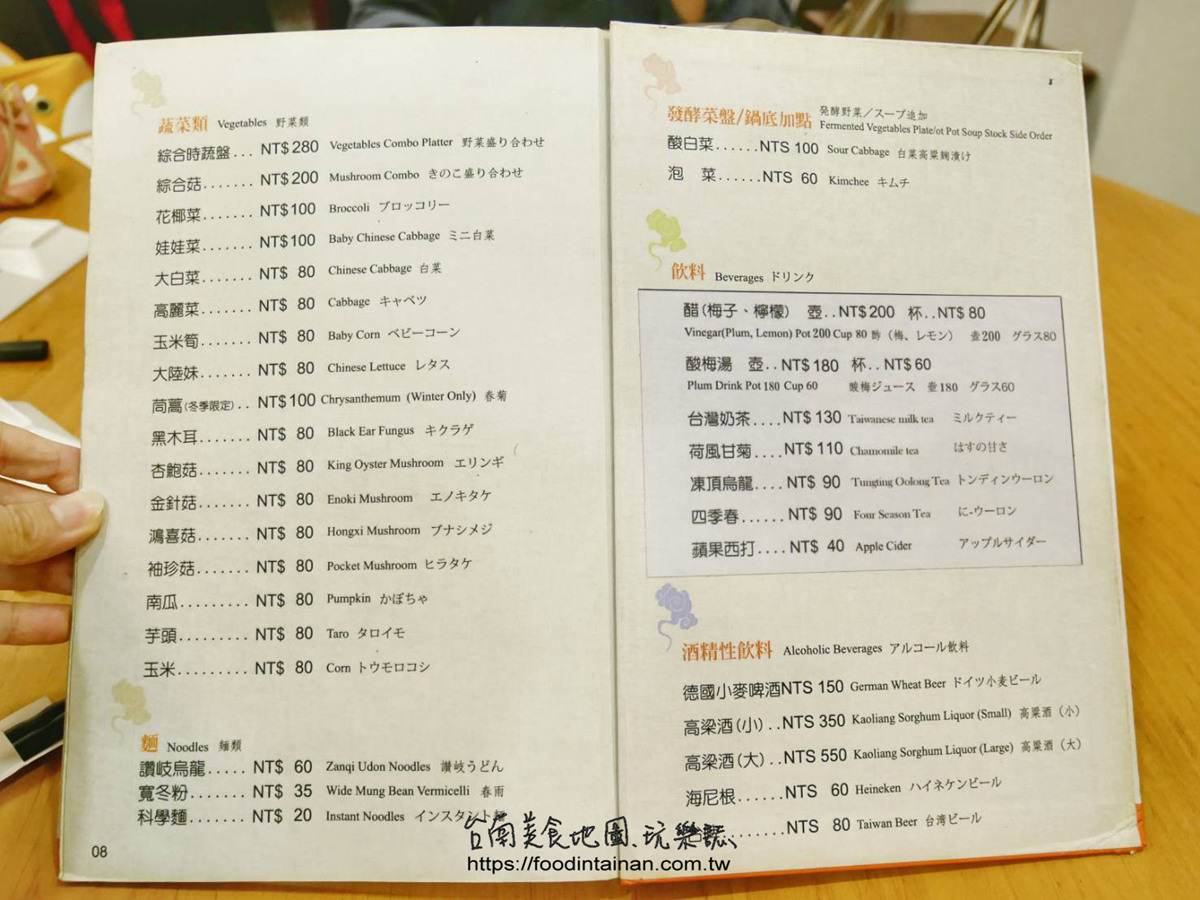 蔬菜類 Vegetables 野菜類
綜合時蔬盤... NT$280 Vegetables Combo Platter 野菜盛り合わせ
綜合菇....... NT$200 Mushroom Combo きのこ盛り合わせ
花椰菜....... NT$100 Broccoli ブロッコリー
娃娃菜....... NT$100 Baby Chinese Cabbage ミニ白菜
大白菜....... NT$ 80 Chinese Cabbage 白菜
高麗菜....... NT$ 80 Cabbage キャベツ
玉米筍....... NT$ 80 Baby Corn ベビーコーン
大陸妹....... NT$ 80 Chinese Lettuce レタス
茼蒿(冬季限定).. NT$100 Chrysanthemum (Winter Only) 春菊
黑木耳....... NT$ 80 Black Ear Fungus キクラゲ
杏鮑菇....... NT$ 80 King Oyster Mushroom エリンギ
金針菇....... NT$ 80 Enoki Mushroom エノキタケ
鴻喜菇....... NT$ 80 Hongxi Mushroom ブナシメジ
袖珍菇....... NT$ 80 Pocket Mushroom ヒラタケ
南瓜......... NT$ 80 Pumpkin かぼちゃ
芋頭......... NT$ 80 Taro タロイモ
玉米......... NT$ 80 Corn トウモロコシ
麵 Noodles 麺類
讚岐烏龍..... NT$ 60 Zanqi Udon Noodles 讃岐うどん
寬冬粉....... NT$ 35 Wide Mung Bean Vermicelli 春雨
科學麵....... NT$ 20 Instant Noodles インスタント
08
發酵菜盤/鍋底加點 発酵野菜／スープ追加
Fermented Vegetables Plate/ot Pot Soup Stock Side Order
酸白菜......NTS 100 Sour Cabbage 白菜高粱麹漬け
泡 菜......NTS 60 Kimchee キムチ
飲料 Beverages ドリンク
醋(梅子、檸檬) 壺..NT$200 杯..NT$ 80
Vinegar(Plum, Lemon) Pot 200 Cup 80 酢（梅、レモン） 壷200 グラス80
酸梅湯 壺..NT$180 杯..NT$60
Plum Drink Pot 180 Cup 60 酸梅ジュース 壷180 グラス60
台灣奶茶....NT$ 130 Taiwanese milk tea ミルクティー
荷風甘菊....NT$ 110 Chamomile tea はすの甘さ
凍頂烏龍....NT$ 90 Tungting Oolong Tea トンディンウーロン
四季春......NT$ 90 Four Season Tea に-ウーロン
蘋果西打....NT$ 40 Apple Cider アップルサイダー
酒精性飲料 Alcoholic Beverages アルコール飲料
德國小麥啤酒NTS 150 German Wheat Beer ドイツ小麦ビール
高梁酒(小)..NTS 350 Kaoliang Sorghum Liquor (Small) 高粱酒（小）
高梁酒(大)..NTS 550 Kaoliang Sorghum Liquor (Large) 高粱酒（大）
海尼根......NTS 60 Heineken ハイネケンビール
........NTS 80 Taiwan Beer 台湾ビール
台南美食地圖、玩樂誌、
https://foodintainan.com.tw